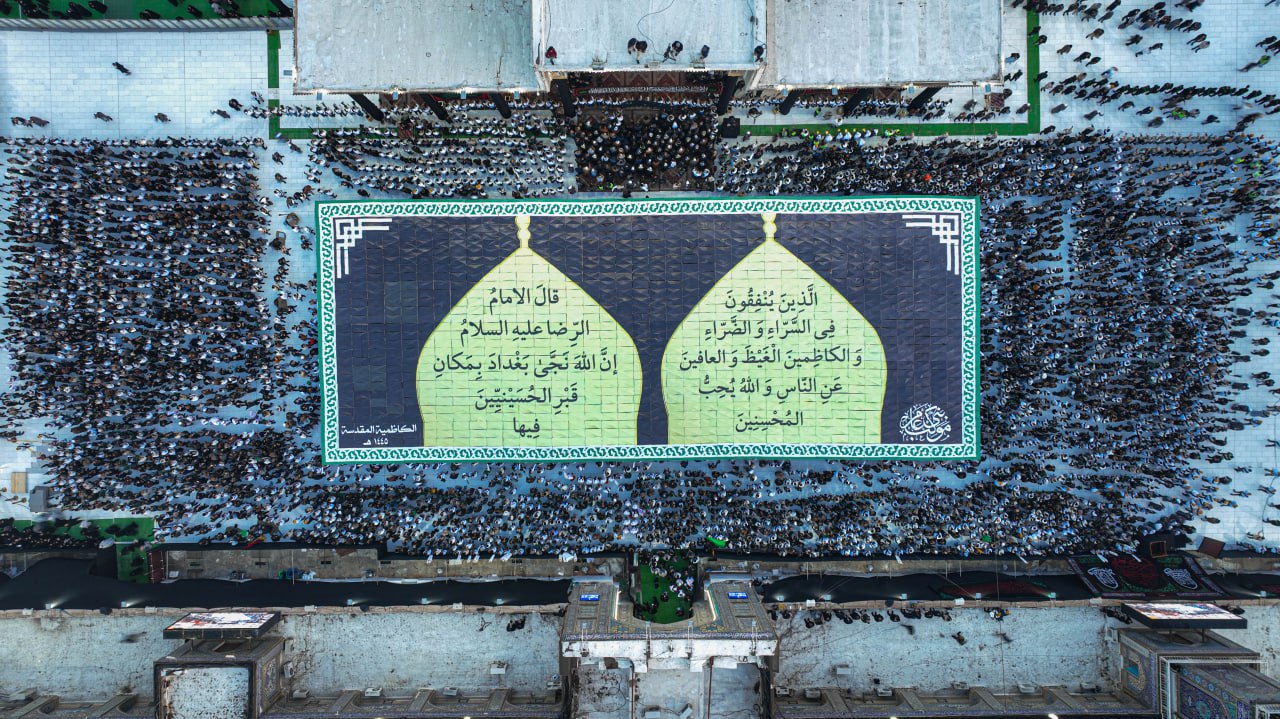 الَّذِينَ يُنْفِقُونَ
فِي السَّرّاءِ وَ الضَّرّاءِ
وَ الكاظِمينَ الْغَيْظَ وَ العافينَ
عَنِ النّاسِ وَ اللهُ يُحِبُّ
المُحْسِنِينَ
قالَ الامامُ
الرّضا عليهِ السلامُ
إنَّ اللهَ نَجَّىٰ بَغْدادَ بِمَكانِ
قَبْرِ الحُسَيْنِيِّينَ
فِيها
الكاظمية المقدسة
١٤٤٥ هـ